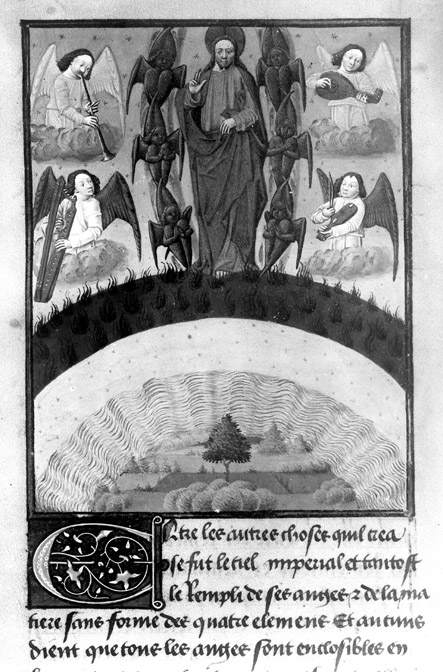 Entre les autres choses quil crea
fut le ciel imperial et tantost
le Rempli de ses anges ⁊ de la ma
tiere sans forme des quatre elemens Et aucuns
dient que tous les anges sont enclosibles en